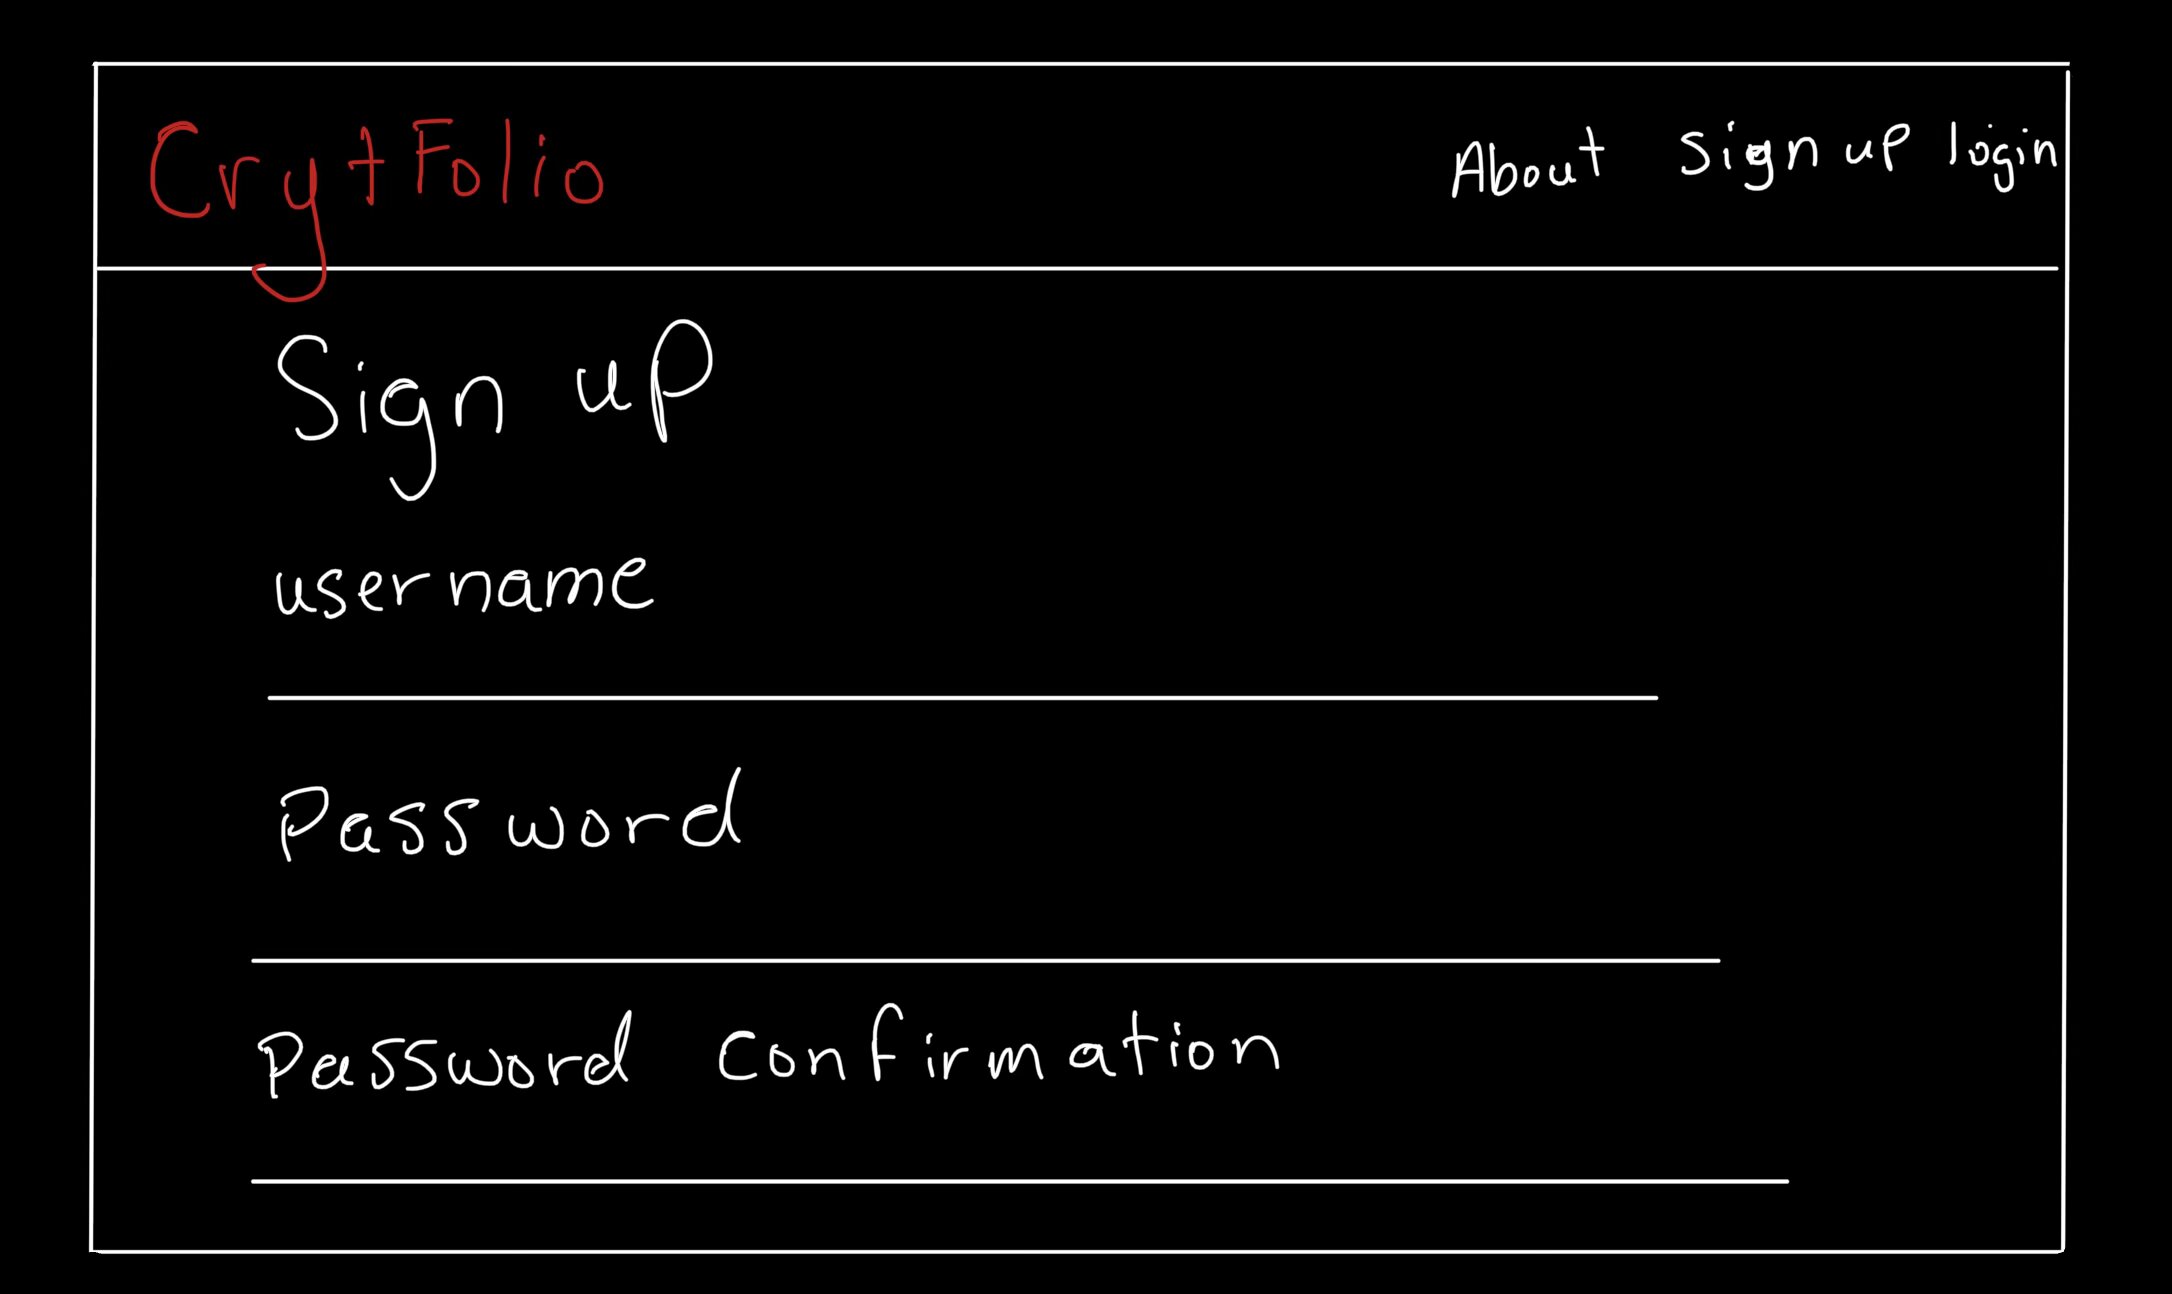 CrytFolio
About Sign up login
Sign up
username
Password
Password Confirmation